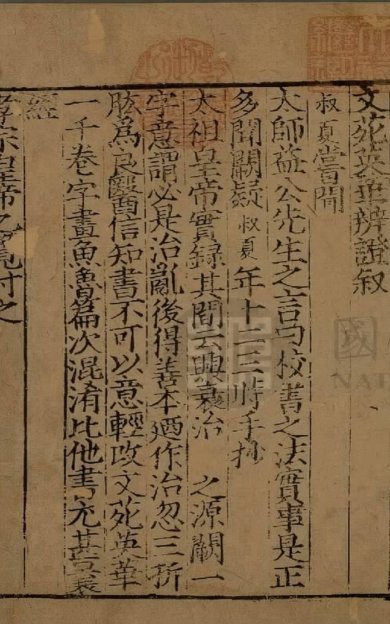 文苑英華辨證叙
叔夏嘗聞
太師益公先生之言曰校書之法實事是正
多聞闕疑叔夏年十二三時手抄
太祖皇帝實錄其間云興衰治 之源闕一
字意謂必是治亂後得善本廼作治忽三折
肱爲良醫信知書不可以意輕改文苑英華
一千卷字畫魚魯篇次混淆比他書尤甚曩
經
孝宗皇帝乙覽付之